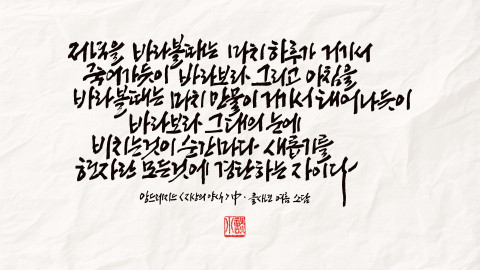 저녁을 바라볼때는 마치 하루가 거기서
죽어가듯이 바라보라 그리고 아침을
바라볼때는 마치 만물이 거기서 태어나듯이
바라보라 그대의 눈에
비치는것이 순간마다 새롭기를
현자란 모든것에 경탄하는 자이다
앙드레지드 <지상의 양식> 中 · 여름 소담